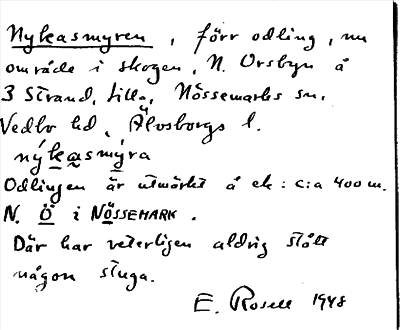 Nykasmyren, förr odling, nu
område i skogen, N. Orsbyn å
3 Strand, lilla, Nössemarks sn.
Vedbo hd, Älvsborgs l.
nýkasmýra
Odlingen är utmärkt å ek: c:a 400 m.
N. Ö i NÖSSEMARK.
Där har veterligen aldrig stått
någon stuga.
E. Rosell 1948